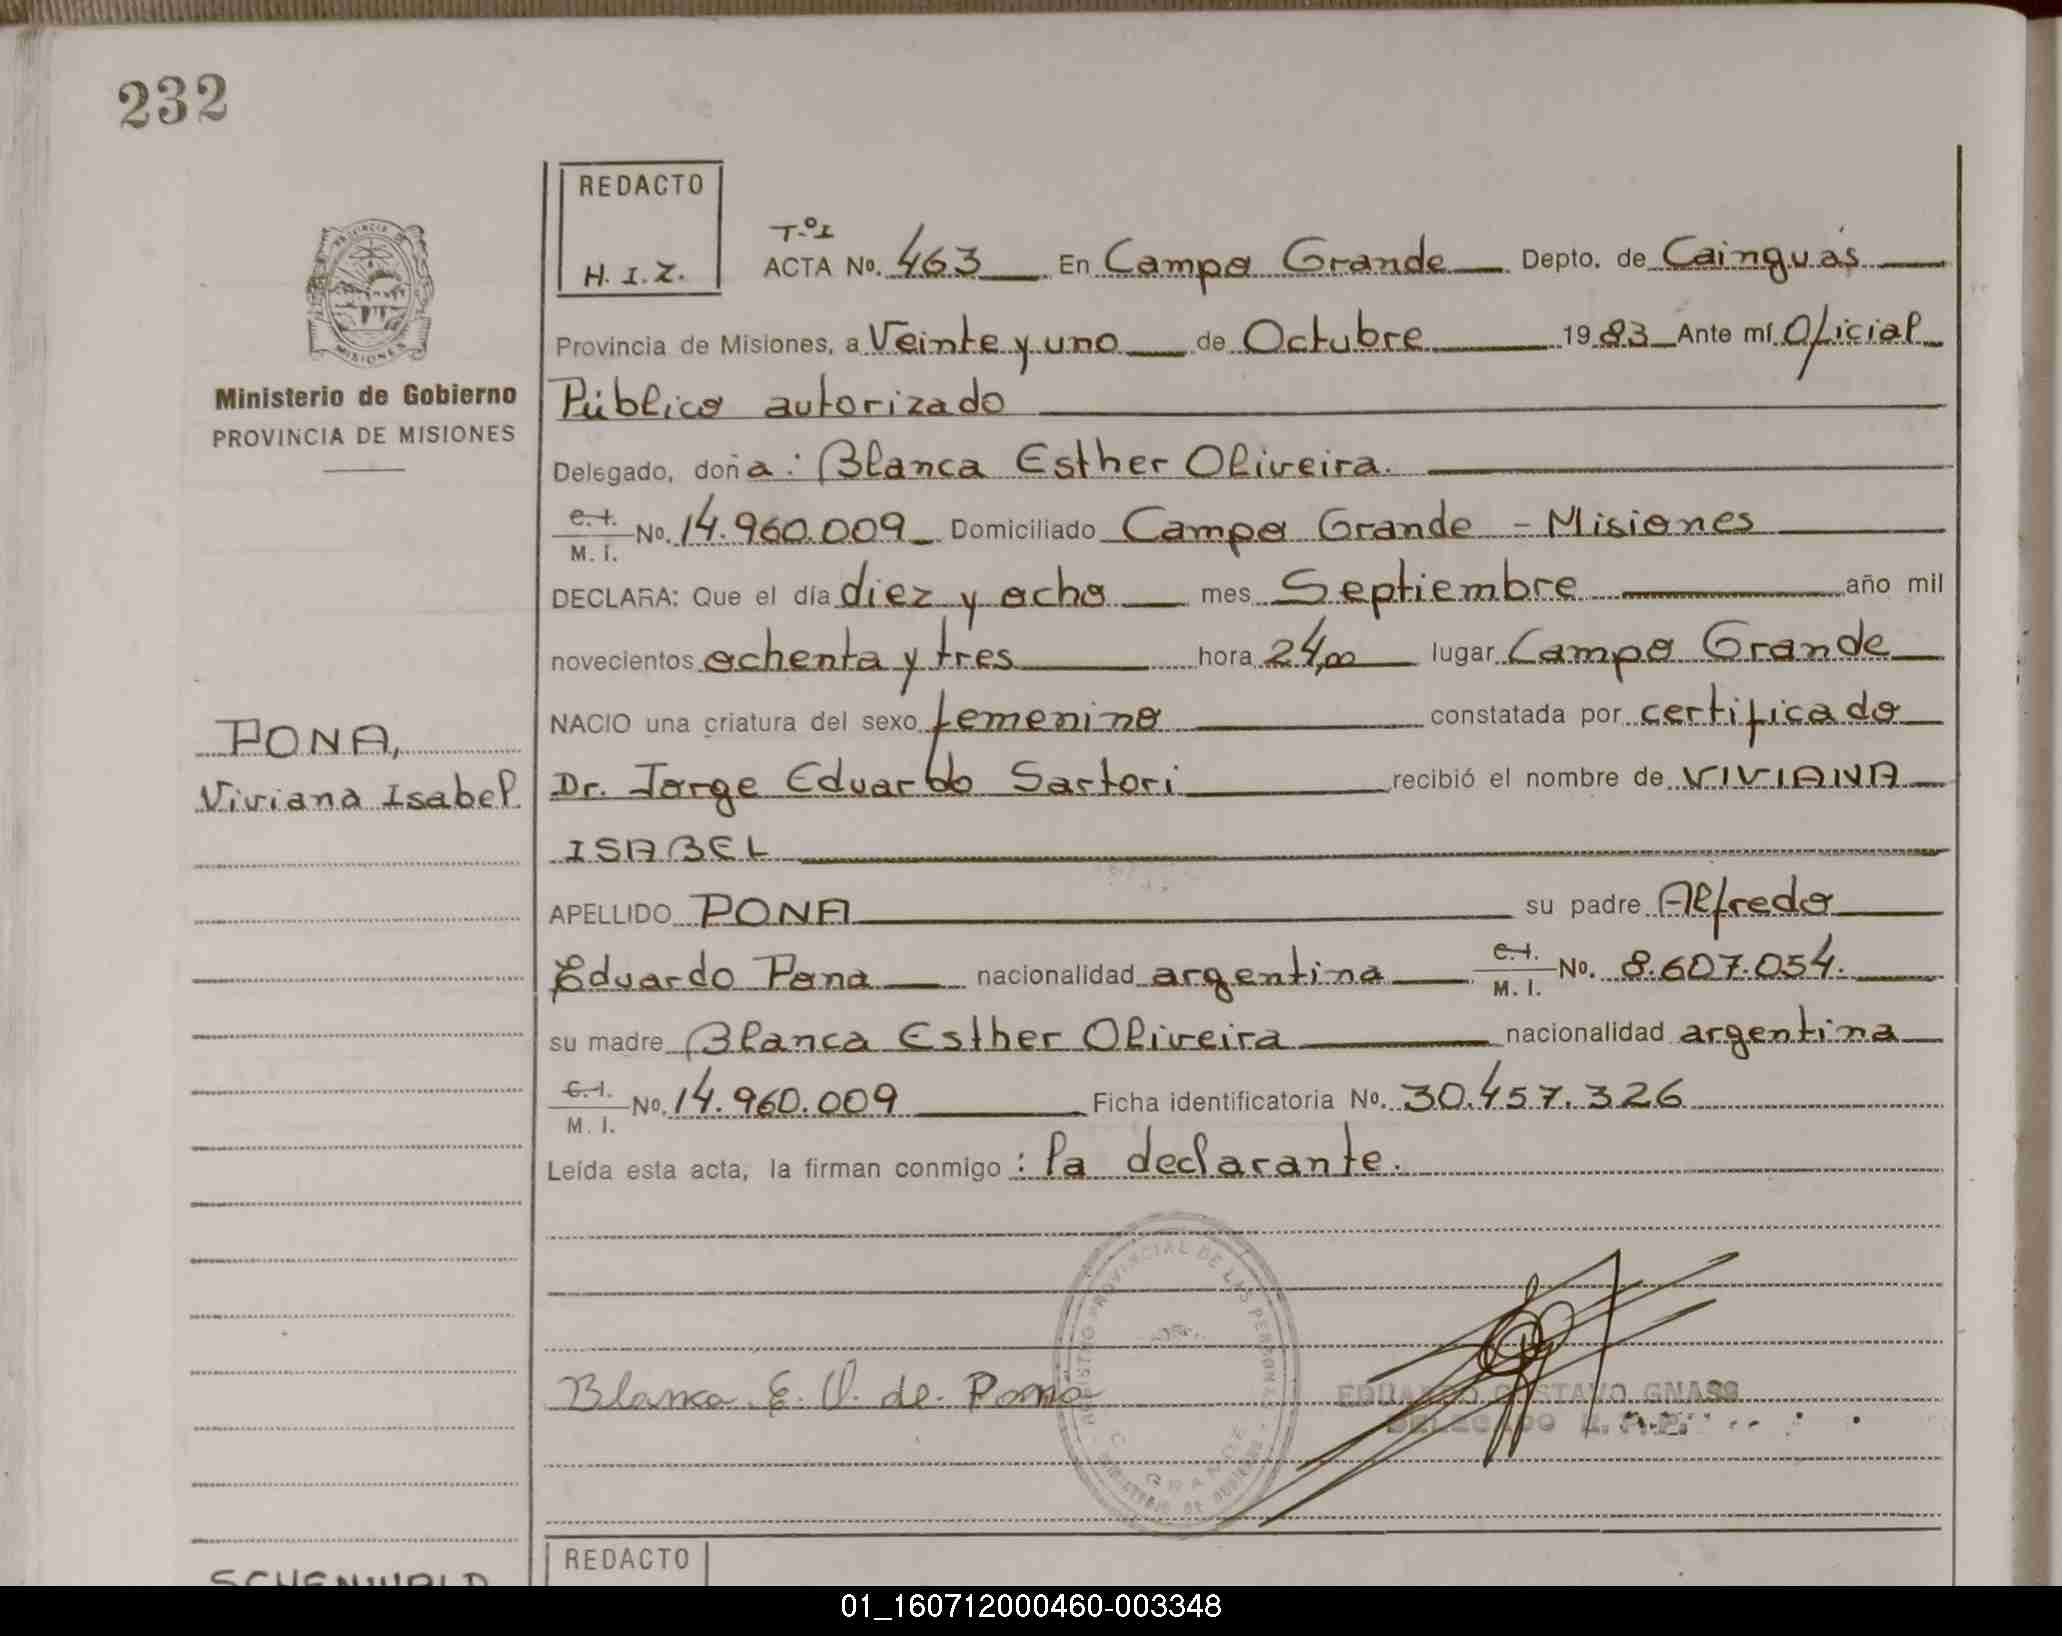 232
REDACTO
H. I. Z.
Tº I
ACTA No. 463 En Campo Grande Depto. de Cainguás
Provincia de Misiones, a Veinte y uno de Octubre 1983 Ante mí Oficial
Público autorizado
Ministerio de Gobierno
PROVINCIA DE MISIONES
Delegado, doña: Blanca Esther Oliveira.
C.I. M.I. No. 14.960.009 Domiciliado Campo Grande - Misiones
DECLARA: Que el día diez y ocho mes Septiembre año mil
novecientos ochenta y tres hora 24,00 lugar Campo Grande
NACIO una criatura del sexo femenino constatada por certificado
PONA,
Viviana Isabel
Dr. Jorge Eduardo Sartori recibió el nombre de VIVIANA
ISABEL
APELLIDO PONA su padre Alfredo
Eduardo Pona nacionalidad argentina C.I. M.I. No. 8.607.054.
su madre Blanca Esther Oliveira nacionalidad argentina
C.I. M.I. No. 14.960.009 Ficha identificatoria No. 30.457.326
Leída esta acta, la firman conmigo: la declarante.
Blanca E. O. de Pona
REGISTRO PROVINCIAL DE LAS PERSONAS
C. GRANDE
MINISTERIO DE GOBIERNO
EDUARDO GUSTAVO GNASS
DELEGADO R.P.P.
REDACTO
01_160712000460-003348